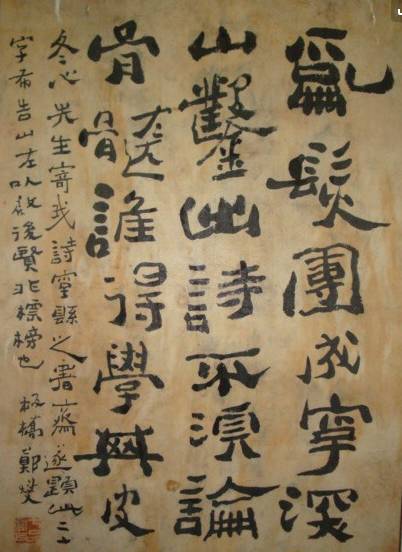 亂髮團成字深
山鑿出詩不須論
骨髓誰得學其皮
冬心先生寄我詩室縣之署齋遂題此二十
字布告山左以啟後賢非標榜也 板橋鄭燮